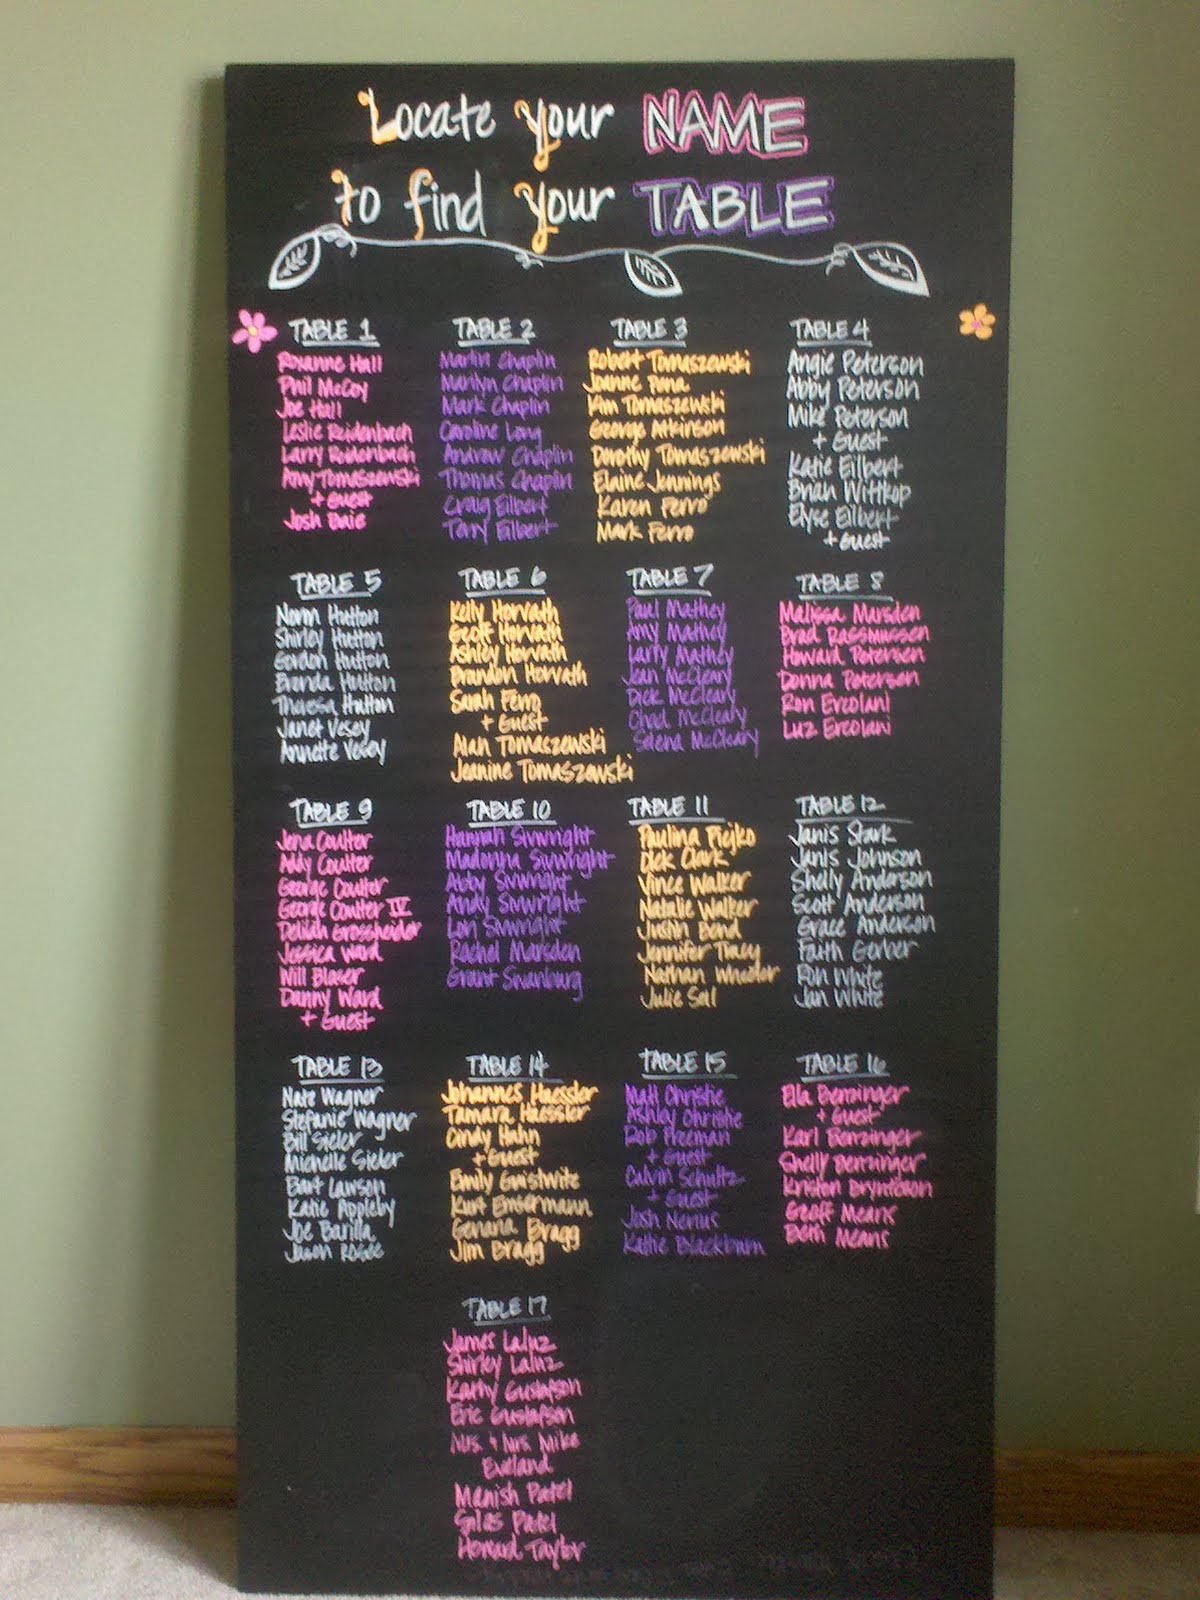 Locate your NAME
to find your TABLE
TABLE 1
Roxanne Hall
Phil McCoy
Joe Hall
Leslie Reidenbach
Larry Reidenbach
Amy Tomaszewski
+ Guest
Josh Buie
TABLE 2
Martin Chaplin
Marilyn Chaplin
Mark Chaplin
Caroline Long
Andrew Chaplin
Thomas Chaplin
Craig Eilbert
Terry Eilbert
TABLE 3
Robert Tomaszewski
Joanne Pena
Kim Tomaszewski
George Atkinson
Dorothy Tomaszewski
Elaine Jennings
Karen Ferro
Mark Ferro
TABLE 4
Angie Peterson
Abby Peterson
Mike Peterson
+ Guest
Katie Eilbert
Brian Wittkop
Elyse Eilbert
+ Guest
TABLE 5
Norm Hutton
Shirley Hutton
Gordon Hutton
Brenda Hutton
Theresa Hutton
Janet Vesey
Annette Vesey
TABLE 6
Kelly Horvath
Geoff Horvath
Ashley Horvath
Brandon Horvath
Sarah Ferro
+ Guest
Alan Tomaszewski
Jeanine Tomaszewski
TABLE 7
Paul Mathey
Amy Mathey
Larry Mathey
Jean McCleary
Dick McCleary
Chad McCleary
Selena McCleary
TABLE 8
Melissa Marsden
Brad Rassmussen
Howard Petersen
Donna Petersen
Ron Ercolani
Luz Ercolani
TABLE 9
Jena Coulter
Addy Coulter
George Coulter
George Coulter IV
Delilah Grossheider
Jessica Ward
Will Blaser
Danny Ward
+ Guest
TABLE 10
Hannah Sivwright
Madonna Sivwright
Abby Sivwright
Andy Sivwright
Lori Sivwright
Rachel Marsden
Grant Swanburg
TABLE 11
Paulina Piejko
Dick Clark
Vince Walker
Natalie Walker
Justin Bend
Jennifer Tracy
Nathan Wheeler
Julie Sal
TABLE 12
Janis Stark
Janis Johnson
Shelly Anderson
Scott Anderson
Grace Anderson
Faith Gerber
Ron White
Jan White
TABLE 13
Nate Wagner
Stefanie Wagner
Bill Sieler
Michelle Sieler
Bart Lawson
Katie Appleby
Joe Barilla
Jason Rosee
TABLE 14
Johannes Haessler
Tamara Haessler
Cindy Hahn
+ Guest
Emily
Kurt
Genana Bragg
Jim Bragg
TABLE 15
Matt Christie
Ashley Christie
Rob Freeman
+ Guest
Calvin Schultz
+ Guest
Josh Nerius
Katie Blackburn
TABLE 16
Ella Benzinger
+ Guest
Karl Benzinger
Shelly Benzinger
Kristen Brynteson
Geoff Means
Beth Means
TABLE 17
James Laluz
Shirley Laluz
Kathy Gustafson
Eric Gustafson
Mrs. + Mrs. Mike
Eveland
Manish Patel
Silas Patel
Howard Taylor